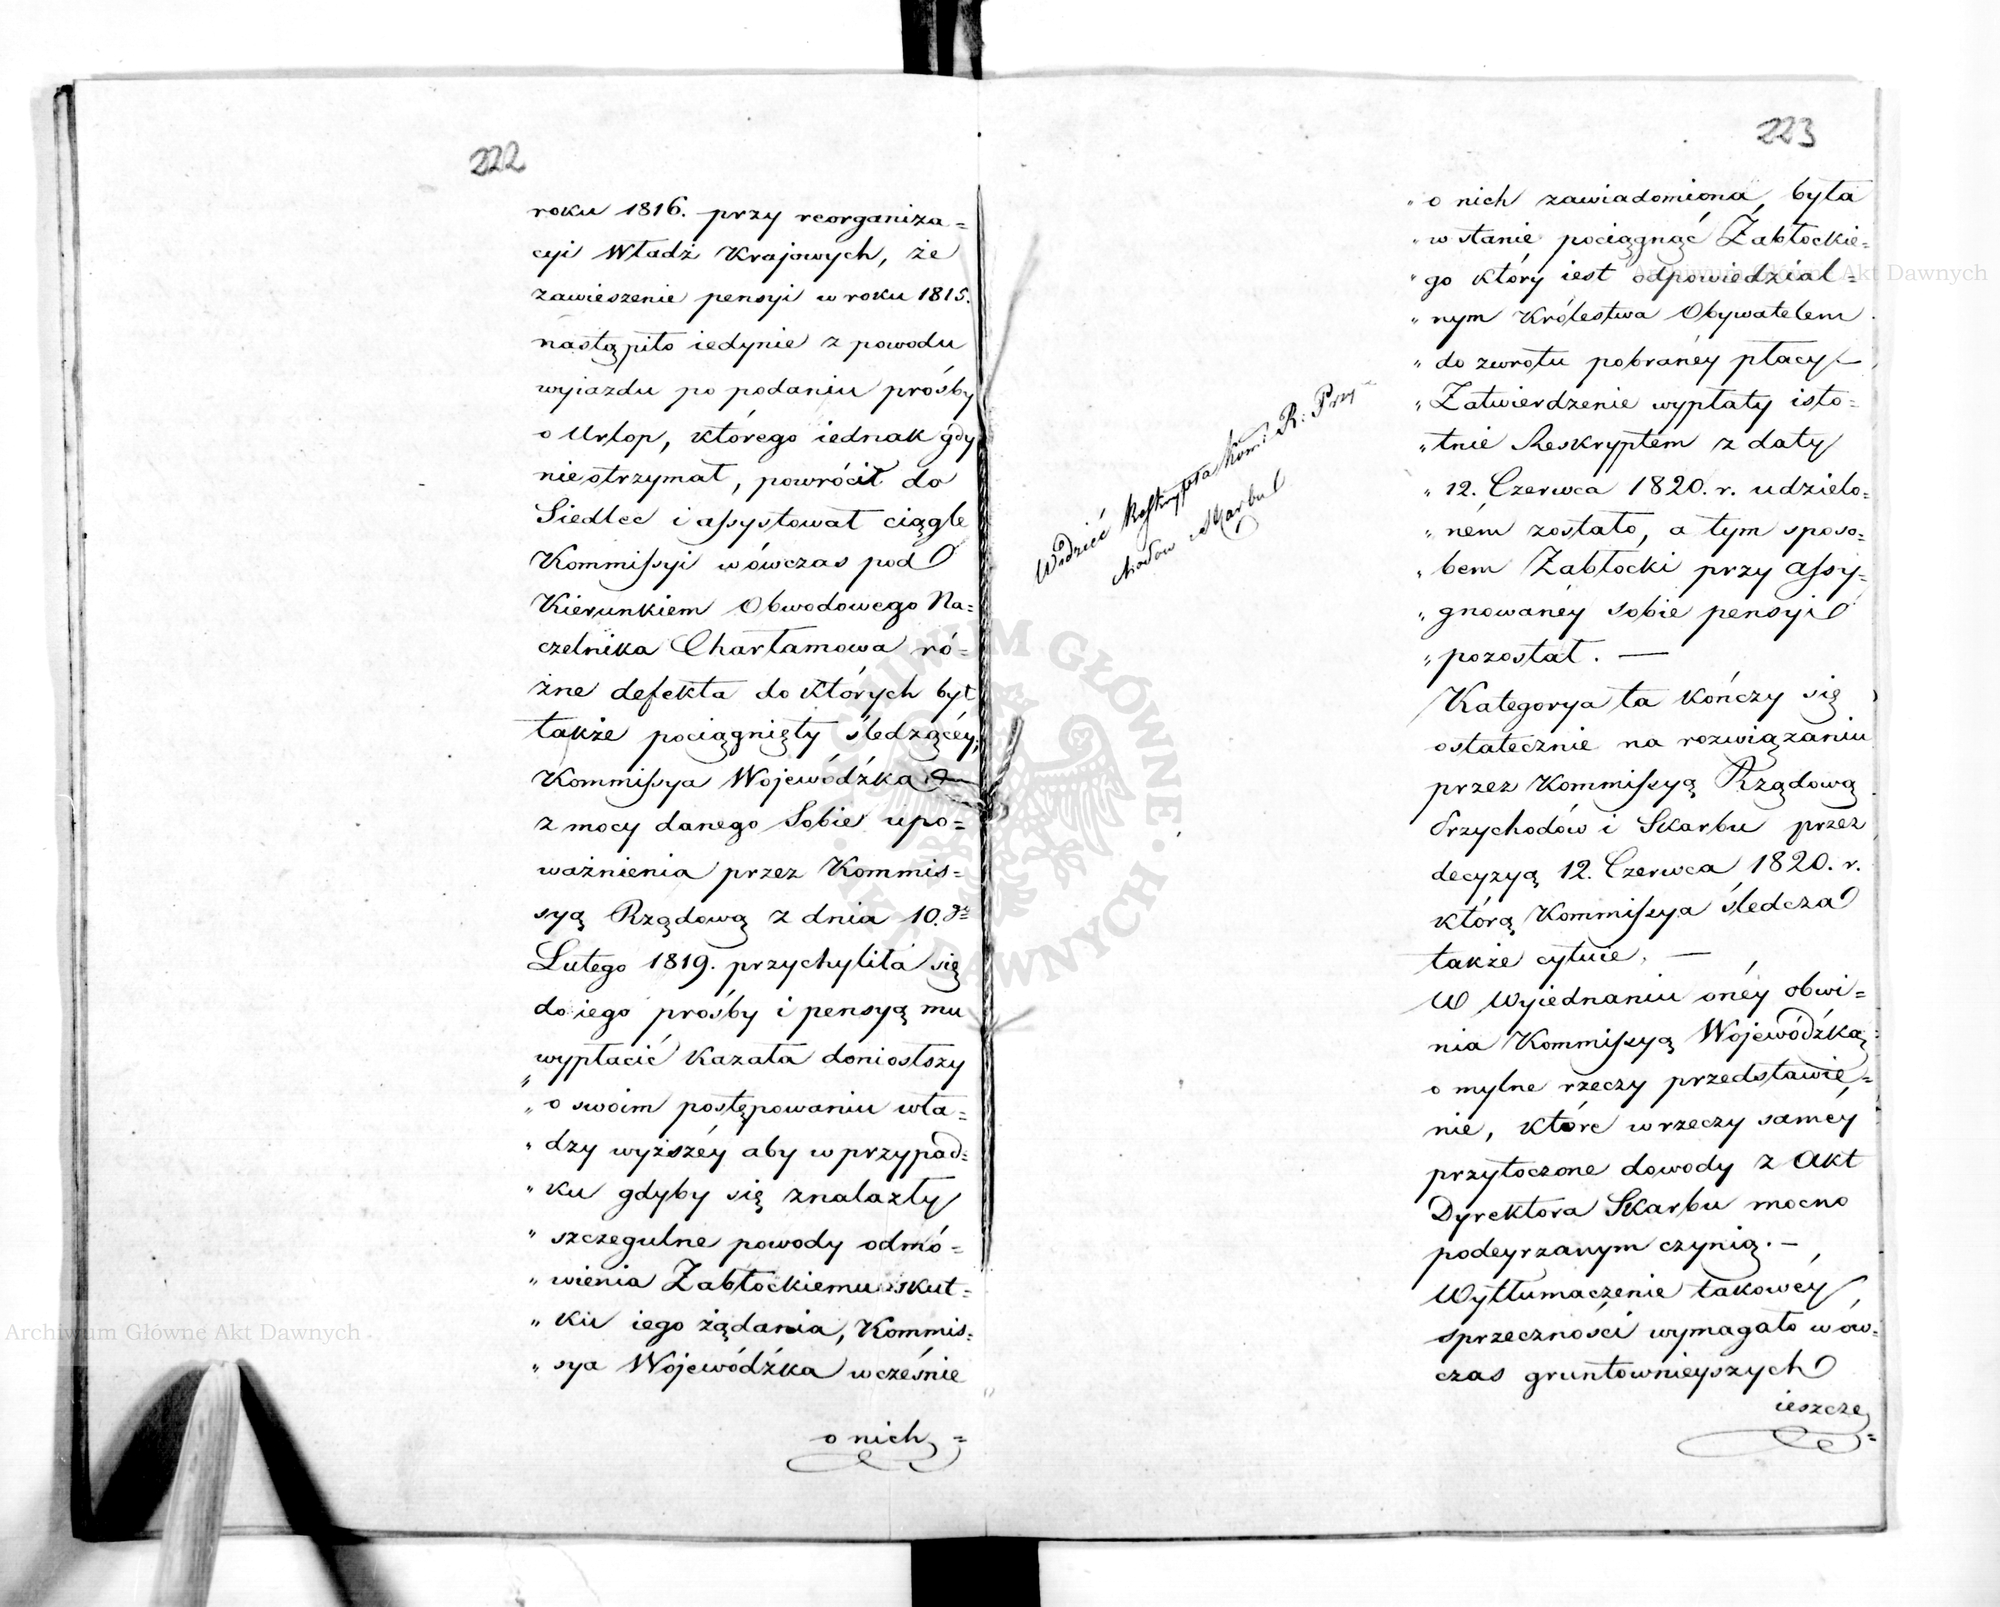 222
roku 1816. przy reorganiza=
cyi Władz Krajowych, że
zawieszenie pensyi w roku 1815.
nastąpiło iedynie z powodu
wyiazdu po podaniu prośby
o Urlop, którego iednak gdy
nie otrzymał, powrócił do
Siedlec i assystował ciągle
Kommissyi wówczas pod
Kierunkiem Obwodowego Na=
czelnika Charłamowa ró=
żne defekta do których był
także pociągnięty śledzącéy,
Kommissya Wojewódźka
z mocy danego Sobie upo=
ważnienia przez Kommis=
syą Rządową z dnia 10.
Lutego 1819. przychyliła się
do iego prośby i pensyą mu
wypłacić kazała doniosłszy
„ o swoim postępowaniu wła=
„ dzy wyższéy aby w przypad=
„ ku gdyby się znalazły
„ szczegulne powody odmó=
„ wienia Zabłockiemu skut=
„ ku iego żądania, Kommis=
„ sya Wojewódźka wcześnie
o nich =
223
„ o nich zawiadomiona, była
„ w stanie pociągnąć Zabłockie=
„ go który iest odpowiedzial=
„ nym Królestwa Obywatelem
„ do zwrotu pobranéy płacy —
„ Zatwierdzenie wypłaty isto=
„ tnie Reskryptem z daty
„ 12. Czerwca 1820. r. udzielo=
„ ném zostało, a tym sposo=
„ bem Zabłocki przy assy=
„ gnowanéy sobie pensyi
„ pozostał. —
Kategorya ta kończy się
ostatecznie na rozwiązaniu
przez Kommissyą Rządową
Przychodów i Skarbu przez
decyzyą 12. Czerwca 1820. r.
którą Kommissya śledcza
także cytuie. —
W Wyjednaniu onéy obwi=
nia Kommissyą Wojewódźką
o mylne rzeczy przedstawie=
nie, które w rzeczy saméy
przytoczone dowody z Akt
Dyrektora Skarbu mocno
podeyrzanym czynią. —
Wytłumaczenie takowéy
sprzeczności wymagało wów=
czas gruntownieyszych
ieszcze =
Widzieć Reskrypta Kom: R: Przy=
chodów i Skarbu
Archiwum Główne Akt Dawnych
Archiwum Główne Akt Dawnych
ARCHIWUM GŁÓWNE · AKT DAWNYCH ·